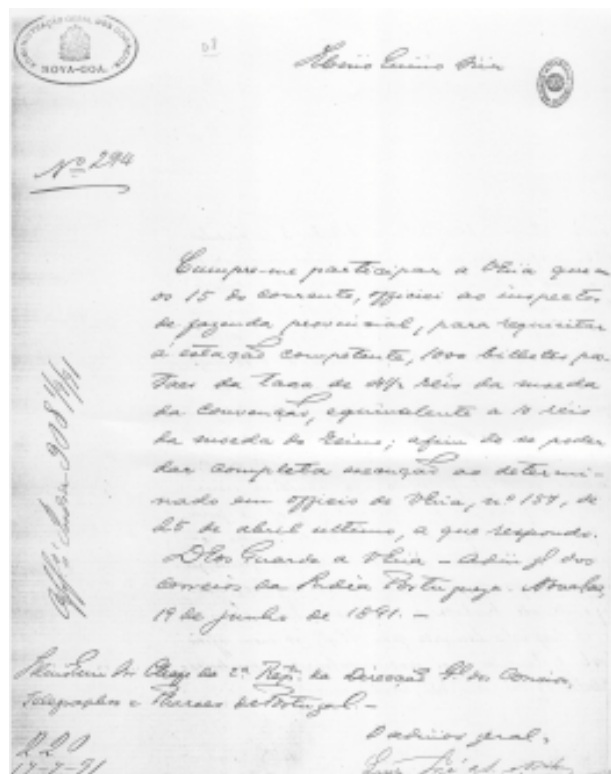 ADMINISTRAÇÃO GERAL DOS CORREIOS
NOVA-GOA.
Nº 294
Cumpre-me participar a V Exia que em
os 15 do corrente, officiei ao inspector
de fazenda provincial, para requisitar
a estação competente, 1000 bilhetes pos-
taes da taxa de reis da moeda
da convenção, equivalente a 10 reis
da moeda do Reino; afim de se poder
dar completa execução ao determi-
nado em officio de V Exia, nº 157, de
25 de abril ultimo, a que respondo.
Deos Guarde a V Exia – Adm g.l dos
correios da India Portugueza.
19 de junho de 1891. –
Chefe da 2ª Repm. da Direcção Gl dos Correios,
Telegraphos e Pharoes de Portugal. –
O admor geral,
220
17-7-91